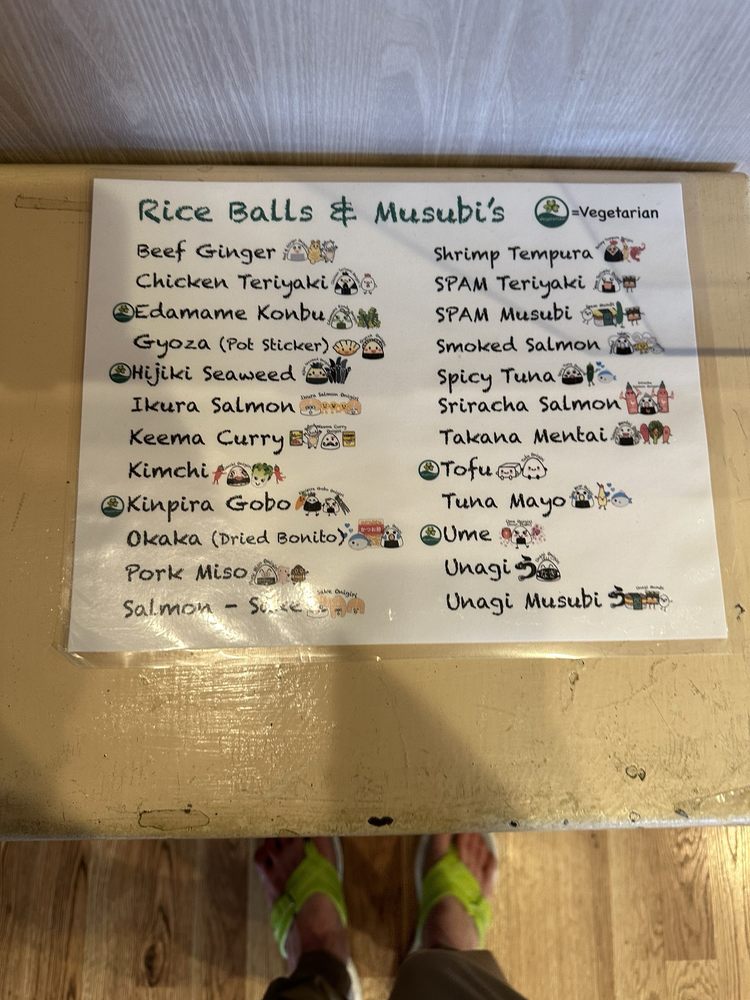 Rice Balls & Musubi's
=Vegetarian
Beef Ginger
Chicken Teriyaki
Edamame Konbu
Gyoza (Pot Sticker)
Hijiki Seaweed
Ikura Salmon
Ikura Salmon Onigiri
Keema Curry
Kimchi
Kinpira Gobo
Okaka (Dried Bonito)
かつお節
Pork Miso
Salmon - Sake
Sake Onigiri
Shrimp Tempura
SPAM Teriyaki
SPAM Musubi
Smoked Salmon
Spicy Tuna
Sriracha Salmon
Takana Mentai
Tofu
Tuna Mayo
Ume
Unagi う
Unagi Musubi う